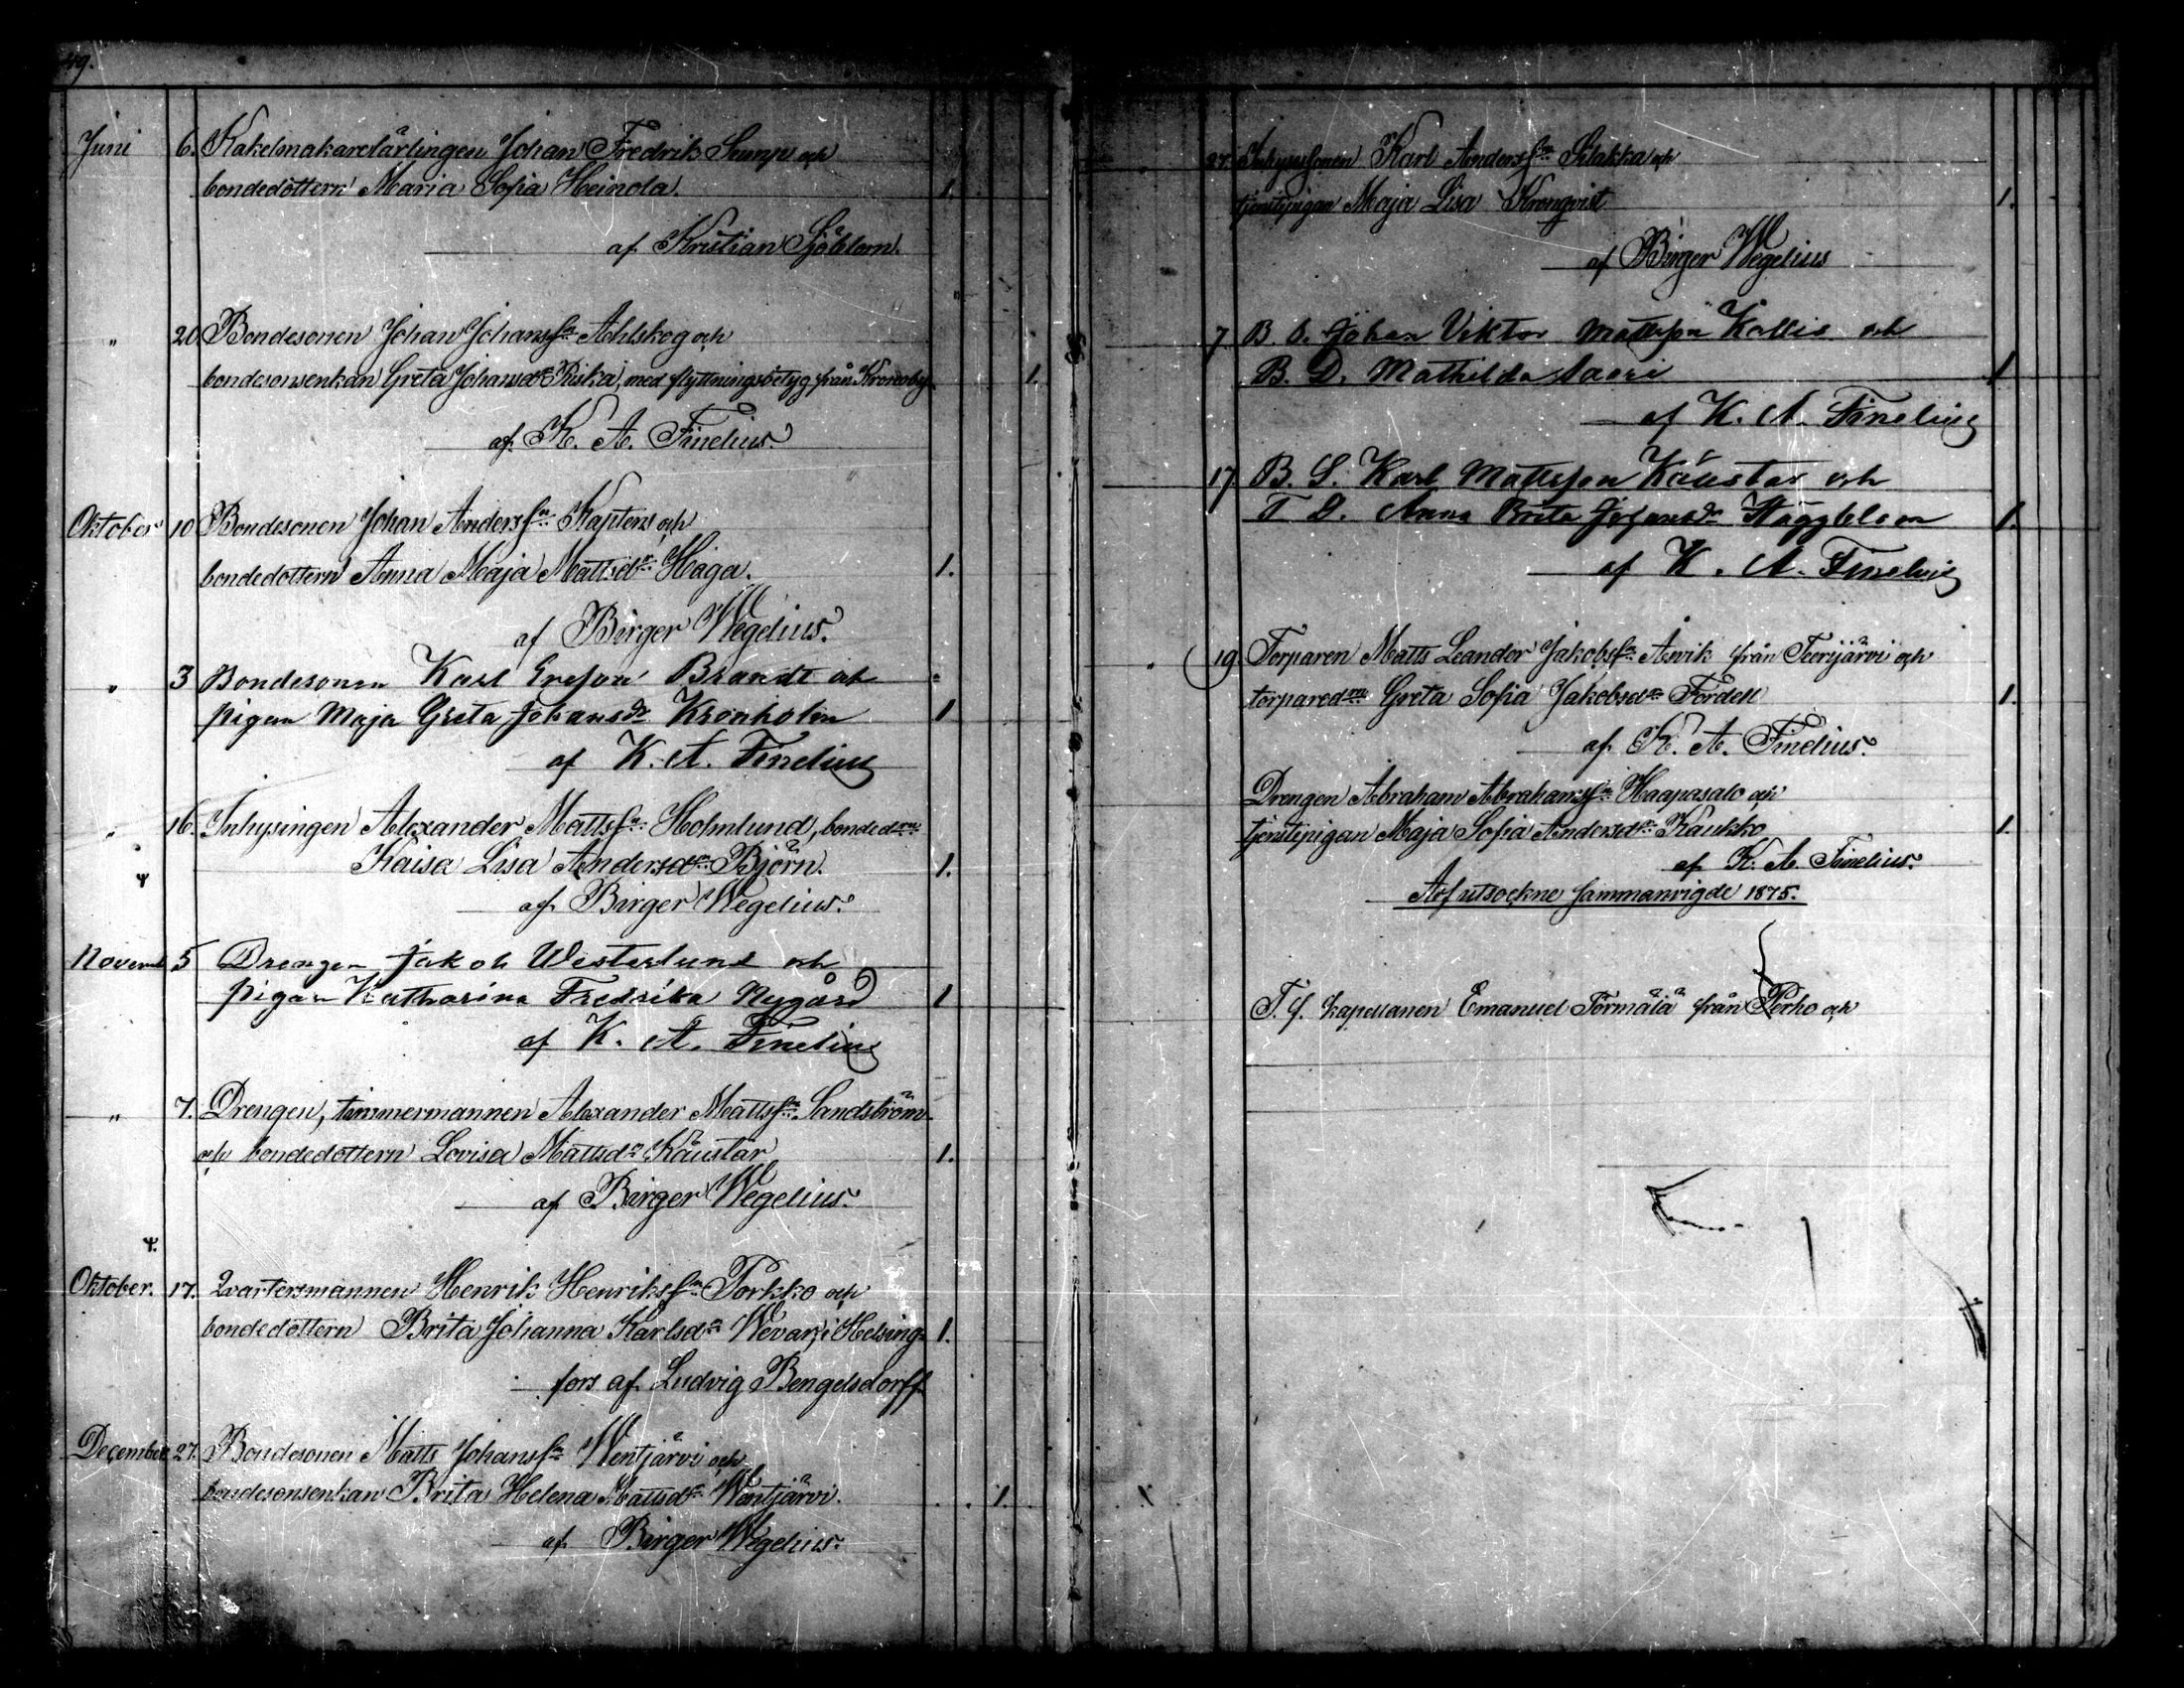 49.
Juni 6. Kakelmakarelärlingen Johan Fredrik Sump och
bondedottern Maria Sofia Heinola. 1.
af Kristian Sjöblom.
" 20 Bondesonen Johan Johanss:n Ahlskog och
bondesonsenkan Greta Johansd:r Riska, med flyttningsbetyg från Kronoby. 1.
af K. A. Finelius.
Oktober 10 Bondesonen Johan Anderss:n Kaptens och
bondedottern Anna Maja Mattsd:r Haga. 1.
af Birger Wegelius.
" 3 Bondesonen Karl Ersson Brandt och
pigan Maja Greta Johansdr Kronholm 1
af K. A. Finelius
" 16. Inhysingen Alexander Mattss:n Holmlund, bonded:rn
Kaisa Lisa Andersd:r Björn. 1.
af Birger Wegelius.
Novemb 5 Drengen Jakob Westerlund och
pigan Katharina Fredrika Nygård 1
af K. A. Finelius
" 7. Drengen, timmermannen Alexander Mattss:n Sandström
och bondedottern Lovisa Mattsd:r Käustar 1.
af Birger Wegelius.
Oktober. 17. Qvartersmannen Henrik Henrikss:n Porkko och
bondedottern Brita Johanna Karlsd:r Wevar, i Helsing- 1.
fors af Ludvig Bengelsdorff
December 27. Bondesonen Matts Johanss:n Wentjärvi och
bondesonsenkan Brita Helena Mattsd:r Wentjärvi. 1.
af Birger Wegelius.
27. Inhysessonen Karl Anderss:n Slakka och
tjenstepigan Maja Lisa Kronqvist 1.
af Birger Wegelius
7. B. S. Johan Viktor Mattsson Kallis och
B. D. Mathilda Saari 1
af K. A. Finelius
17 B. S. Karl Mattsson Käustar och
T D. Anna Brita Johansdr Häggblom 1.
af K. A. Finelius
" 19 Torparen Matts Leander Jakobss:n Åsvik från Teerijärvi och
torpared:rn Greta Sofia Jakobsd:r Fordell 1.
af K. A. Finelius.
Drengen Abraham Abrahamss:n Haapasalo och
tjenstepigan Maja Sofia Andersd:r Kaukko 1.
af K. A. Finelius.
Af utsockne sammanvigde 1875.
T. f. kapellanen Emanuel Törmälä från Perho och